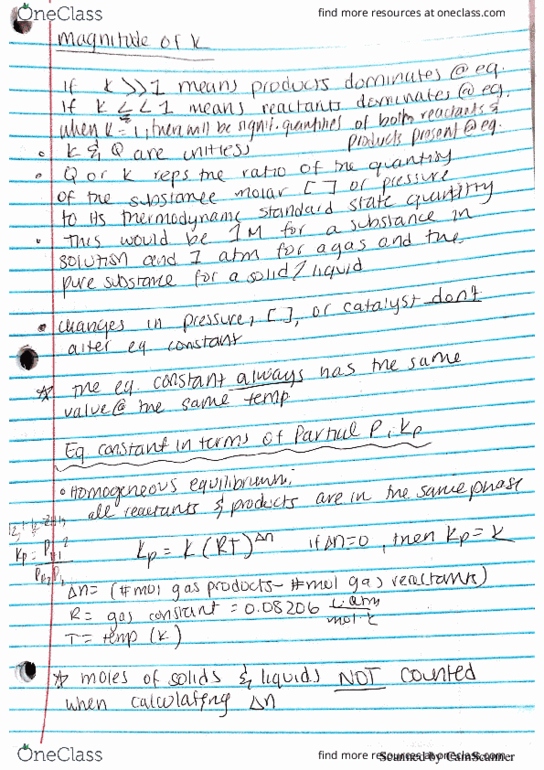 OneClass
find more resources at oneclass.com
magnitude of k
if k >>1 means products dominates @ eq.
if k << 1 means reactants dominates @ eq.
when k = 1, then will be signif. quantities of both reactants &
products present @ eq.
k & Q are unitless
Q or k reps the ratio of the quantity
of the substance molar [ ] or pressure
to its thermodynamic standard state quantity
This would be 1M for a substance in
solution and 1 atm for a gas and the
pure substance for a solid/liquid
changes in pressure, [ ], or catalyst don't
alter eq constant
☆ The eq. constant always has the same
value @ the same temp
Eq constant in terms of Partial P, Kp
Homogeneous equilibrium:
all reactants & products are in the same phase
Kp = K (RT)^Δn if Δn=0, then Kp = K
Kp =
Δn= (#mol gas products- #mol gas reactants)
R= gas constant = 0.08206 L atm
mol K
T= temp (K)
☆ moles of solids & liquids NOT counted
when calculating Δn
OneClass
find more resources at oneclass.com
Scanned by CamScanner